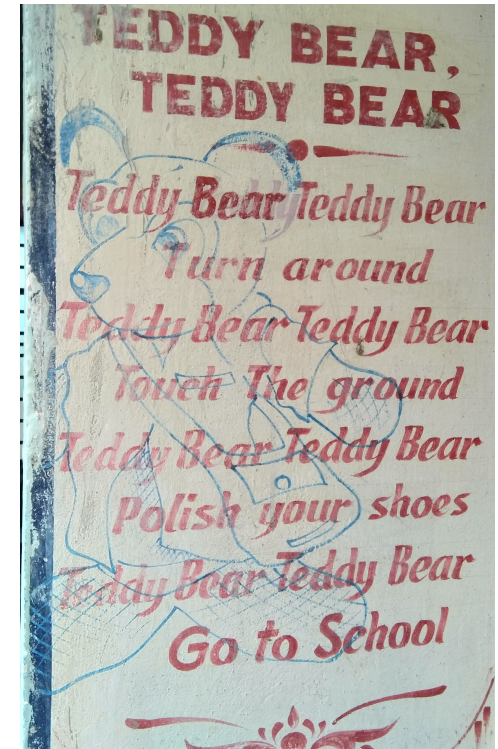 TEDDY BEAR,
TEDDY BEAR
Teddy Bear Teddy Bear
Turn around
Teddy Bear Teddy Bear
Touch The ground
Teddy Bear Teddy Bear
Polish your shoes
Teddy Bear Teddy Bear
Go to School